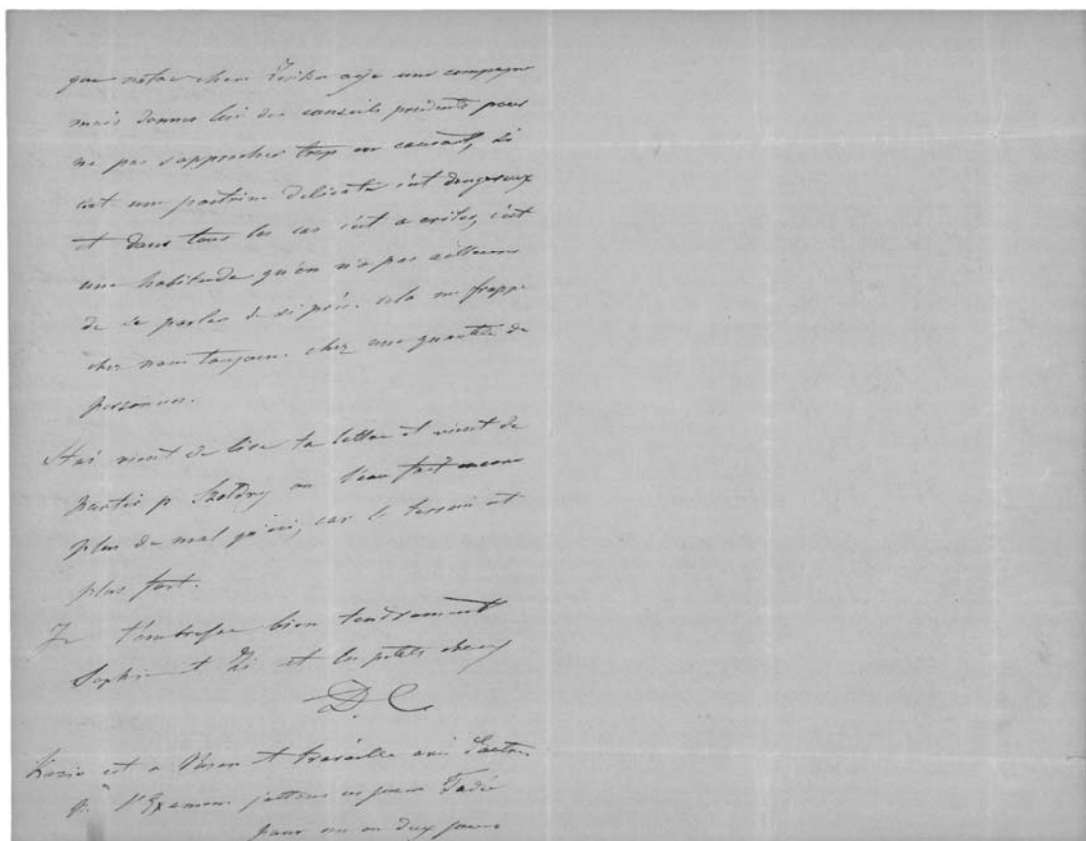 que notre chere aije une compagne
mais donnez lui des conseils prudents pour
ne pas s'approcher trop en causant, si
c'est une poitrine delicate c'est dangereux
et dans tous les cas c'est a eviter, c'est
une habitude qu'on n'a pas ailleurs
de se parler de si près. cela me frappe
chez nous toujours chez une quantité de
personnes.
Staś vient de lire ta lettre et vient de
partir p. ou l'eau fait encore
plus de mal qu'ici, car le terrain est
plus fort.
Je t'embrasse bien tendrement
Sophie et Zi et les petits
D. C
Kazio est a et travaille avec
p. l'Examen j'attens ces jours Tadé
pour un ou deux jours